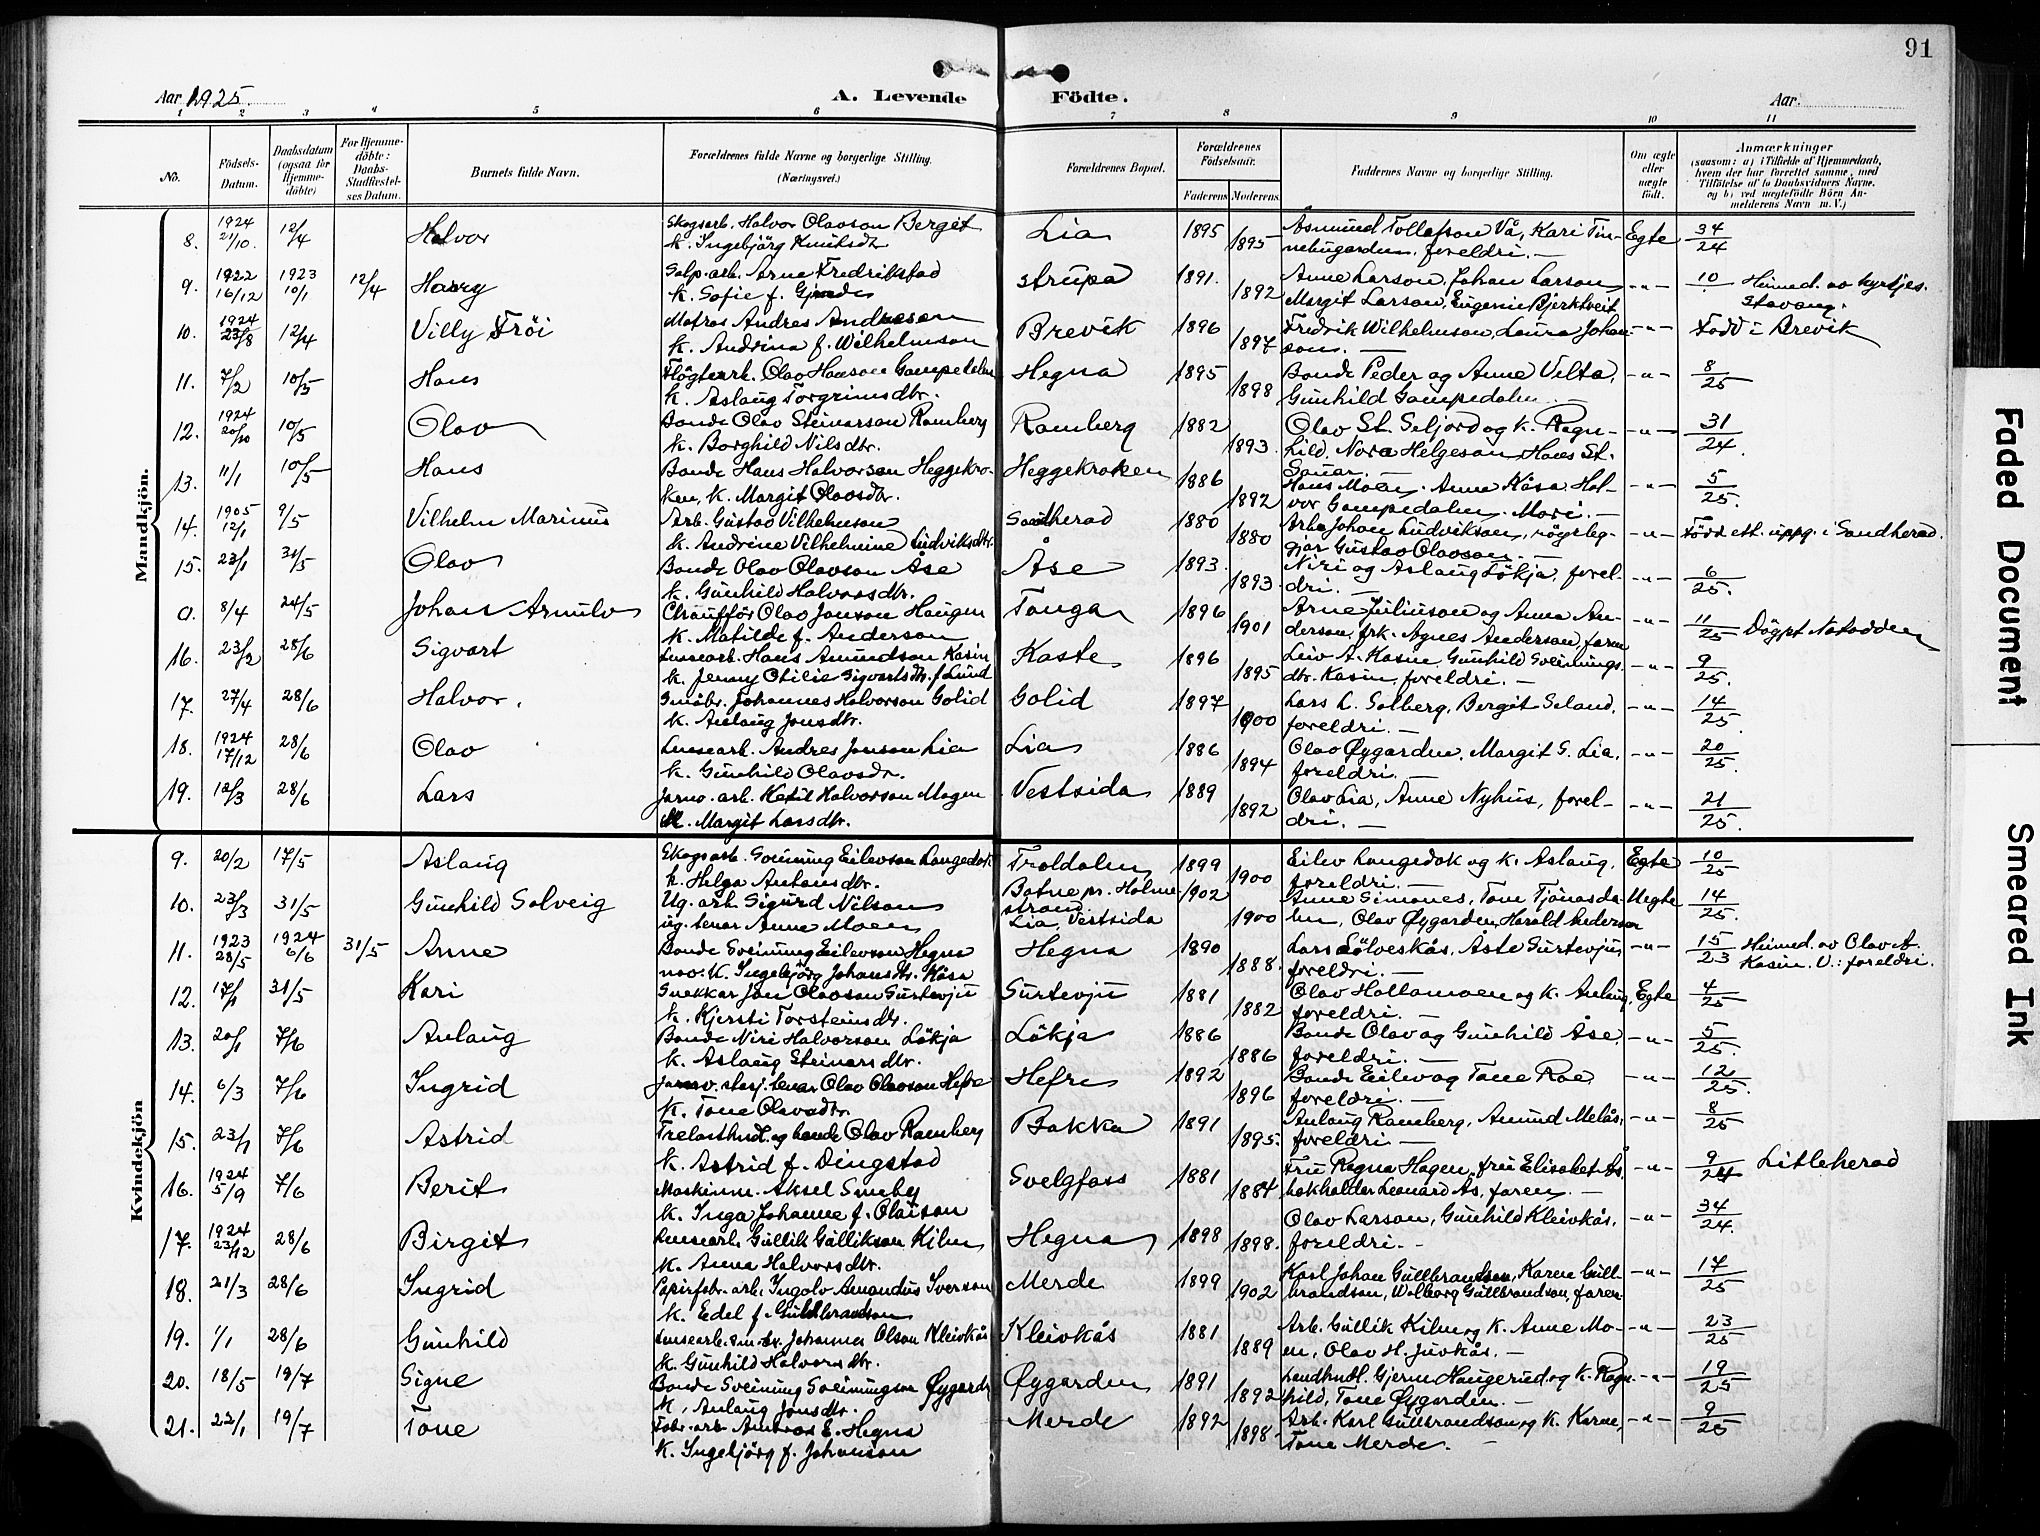 91
Aar 1925.
A. Levende Födte.
Aar.
1 2 3 4 5 6 7 8 9 10 11
No.
Födsels-Datum.
Daabsdatum (ogsaa for Hjemme-döbte)
For Hjemme-döbte: Daabs-Stadfæstel-ses Datum.
Barnets fulde Navn.
Forældrenes fulde Navne og borgerlige Stilling. (Næringsvei.)
Forældrenes Bopæl.
Forældrenes Födselsaar.
Faderens Moderens
Faddernes Navne og borgerlige Stilling.
Om ægte eller uægte födt.
Anmærkninger (saasom: a) i Tilfælde af Hjemmedaab, hvem der har forrettet samme, med Tilföielse af to Daabsvidners Navne, og b) ved uægtefödte Börn Anmelderens Navn m. V.)
Mandkjön.
8. 1924 21/10. 12/4 Halvor Skogsarb. Halvor Olavson Bergit Lia 1895 Åsmund Tollefson Vå, Kari Tin- Egte 34/24
k. Ingebjörg Knutsdtr 1895 nebugarden, foreldri. —
9. 1922 16/12 1923 10/1 12/4 Harry Salp. arb. Arne Fredrikstad Strupa 1891. Anne Larson, Johan Larson -"- 10 Heimed. av kyrkjes.
k. Sofie f. 1892 Margit Larson, Eugenie Bjerktveit Stavang.
10. 1924 23/8 12/4 Villy Fröi Matros Andres Andreson Brevik 1896 Fredrik Wilhelmson, Laura Johan- -"- Född i Brevik
k. Andrina f. Wilhelmson 1897 son. —
11. 7/2 10/5 Hans Flögtearb. Olav Hanson Gampedalen Hegna 1895 Bonde Peder og Anne Velta, -"- 8/25
k. Aslaug Torgrimsdtr. 1898 Gunhild Gampedalen —
12. 1924 20/10 10/5 Olav Bonde Olav Steinarson Ramberg Ramberg 1882 Olav St. Seljord og k. Ragn- -"- 31/24.
k. Borghild Nilsdtr. 1893. hild, Nora Helgeson, Hans St.
Sauar. —
13. 11/1 10/5 Hans Bonde Hans Halvorson Heggekro- Heggekroken 1886 Hans Moen, Anne Kåsa, Hal- -"- 5/25.
ken, k. Margit Olavsdtr. 1892 vor Gampedalen, Mori. —
14. 1905 12/1 9/5 Vilhelm Marinus Arb. Gustav Vilhelmson Sandherad 1880 Arb. Johan Ludvikson, -"- Född ett. uppg. i Sandherad.
k. Andrine Vilhelmine Ludviksdtr. 1880 Gustav Olavson. —
15. 23/1 31/5 Olav Bonde Olav Olavson Åse Åse 1893. Niri og Aslaug Lökja, forel- -"- 6/25.
k. Gunhild Halvorsdtr. 1893. dri. —
0. 8/4 24/5 Johan Arnulv Chaufför Olav Jonson Haugen Tanga 1896 Arne Juliuson og Anna An- -"- 11/25 Döypt Notodden
k. Matilde f. Anderson 1901 derson, frk. Agnes Anderson, faren
16. 23/2 28/6 Sigvart Lussearb. Hans Amundson Kasin Kaste 1896 Leiv A. Kasin, Gunhild Sveinungs- -"- 9/25.
k. Jenny Otilie Sigvartsdtr. f. Lund 1895 dtr. Kasin, foreldri. —
17. 27/4 28/6 Halvor. Småbr. Johannes Halvorson Golid Golid 1897 Lars L. Solberg, Bergit Seland, -"- 14/25.
k. Anlaug Jonsdtr. 1900 foreldri. —
18. 1924 17/12 28/6 Olav Lussearb. Andres Jonson Lia Lia 1886 Olav Øygarden, Margit G. Lia, -"- 20/25.
k. Gunhild Olavsdtr. 1894 foreldri. —
19. 12/3 28/6 Lars Jarnv. arb. Ketil Halvorson Mogen Vestsida 1889 Olav Lia, Anne Nyhus, forel- -"- 21/25.
k. Margit Larsdtr. 1892 dri. —
Kvindekjön
9. 20/2 17/5 Aslaug Skogsarb. Sveinung Eilevson Langedok Troldalen 1899 Eilev Langedok og k. Aslaug, Egte 10/25
k. Helga Antonsdtr. 1900 foreldri. —
10. 23/3 31/5 Gunhild Solveig Ug. arb. Sigurd Nilson Botne pr. Holmestrand 1902 Anne Simones, Tone Tjönnsda- Uegte 14/25.
ug. tenar Anne Moen Lia, Vestsida 1900 len, Olav Øygarden, Harald Pederson
11. 1923 28/5 1924 6/6 31/5 Anne Bonde Sveinung Eilevson Hegna Hegna 1890 Lars Sölveskås, Aste Gurtevju, -"- 15/23 Heimed. av Olav A.
nov. k. Ingebjörg Johansdtr. Kåsa 1888. foreldri. — Kasin. V.: foreldri.
12. 17/1 31/5 Kari Snekkar Jon Olavson Gurtevju Gurtevju 1881 Olav Holtamoen og k. Anlaug, Egte 4/25
k. Kjersti Torsteinsdtr. 1882 foreldri. —
13. 20/1 7/6 Anlaug Bonde Niri Halvorson Lökja Lökja 1886 Bonde Olav og Gunhild Åse, -"- 5/25.
k. Aslaug Steinarsdtr. 1886 foreldri. —
14. 6/3 7/6 Ingrid Jarnv. stasj. tenar Olav Olavson Hefre Hefre 1892 Bonde Eilev og Tone Roe -"- 12/25.
k. Tone Olavsdtr. 1896 foreldri. —
15. 23/1 7/6 Astrid Trelasthndl. og bonde Olav Ramberg Bakka 1891 Anlaug Ramberg, Amund Melås, -"- 8/25
k. Astrid f. Dingstad 1895. foreldri —
16. 1924 5/9 7/6 Berit Maskinm. Aksel Smeby Svelgfoss 1881 Fru Ragna Hagen, fru Elisabet Ås, -"- 9/24 Litleherad
k. Inga Johanne f. Olaison 1884 bokholder Leonard Ås, faren. —
17. 1924 23/12 28/6 Birgit Lussearb. Gullik Gullikson Kilen Hegna 1898 Olav Larson, Gunhild Kleivkås, -"- 34/24.
k. Anna Halvorsdtr. 1898. foreldri. —
18. 21/3 28/6 Ingrid Papirfabr. arb. Ingolv Amandus Iverson Merde 1899 Karl Johan Gullbrandson, Karen Gull- -"- 17/25
k. Edel f. Gullbrandson 1902 brandson, Walborg Gullbrandson, faren
19. 1/1 28/6 Gunhild Lussearb. sm. br. Johannes Olson Kleivkås Kleivkås 1881 Arb. Gullik Kilen og k. Anne Mo- -"- 23/25
k. Gunhild Halvorsdtr. 1889 en, Olav H. Juvkås. —
20. 18/5 19/7 Signe Bonde Sveinung Sveinungson Øygarden Øygarden 1891 Landhndl. Gjerm. Haugerud og k. Ragn- -"- 19/25
k. Anlaug Jonsdtr. 1892 hild, Tone Øygarden. —
21. 22/1 19/7 Tone Fabr. arb. Andres E. Hegna Merde 1892 Arb. Karl Gullbrandson og k. Karen, -"- 9/25
k. Ingebjörg f. Johanson 1898. Tone Merde. —
Faded Document
Smeared Ink